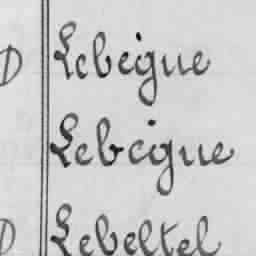 D Lebeigne
Lebeigne
D Lebeltel